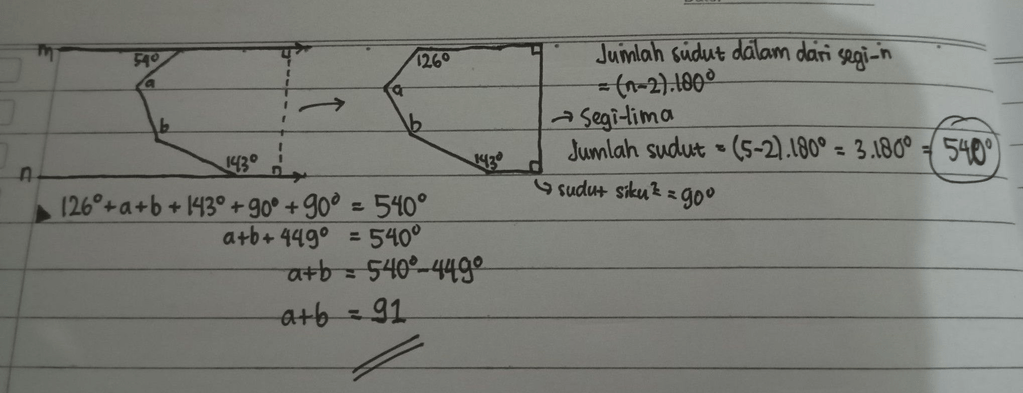 m
54°
a
b
143°
n
126°
a
b
143°
Jumlah sudut dalam dari segi-n
= (n-2).180°
→ Segi-lima
Jumlah sudut = (5-2).180° = 3.180° = 540°
↳ sudut siku² = 90°
126° + a + b + 143° + 90° + 90° = 540°
a+b + 449° = 540°
a+b = 540° - 449°
a+b = 91